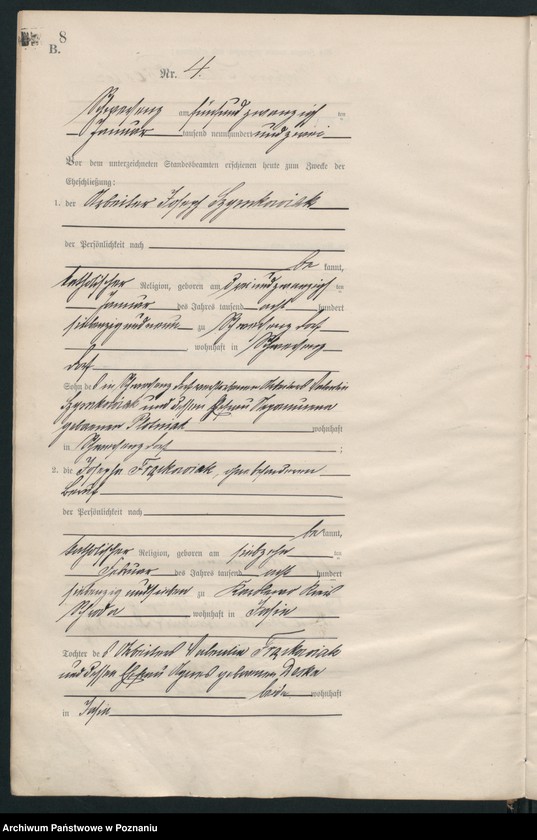 8
B.
Nr. 4.
Schwersenz am fünfundzwanzig ten
Januar tausend neunhundert und zwei
Vor dem unterzeichneten Standesbeamten erschienen heute zum Zwecke der
Eheschließung:
1. der Arbeiter Josef Szymkowiak
der Persönlichkeit nach
be kannt,
katholischer Religion, geboren am dreiundzwanzig ten
Januar des Jahres tausend acht hundert
siebenzig und neun zu Schwersenz Dorf
, wohnhaft in Schwersenz
Dorf
Sohn des in Schwersenz Dorf verstorbenen Arbeiters Valentin
Szymkowiak und dessen Ehefrau
geborenen wohnhaft
in Schwersenz Dorf ;
2. die Josepha Frąckowiak, ohne besonderen
Beruf
der Persönlichkeit nach
be kannt,
katholischer Religion, geboren am siebzehn ten
Februar des Jahres tausend acht hundert
siebenzig und sieben zu Kreis
Schroda wohnhaft in Jasin
Tochter des Arbeiters Valentin Frąckowiak
und dessen Ehefrau Agnes geborenen
beide wohnhaft
in Jasin
Archiwum Państwowe w Poznaniu